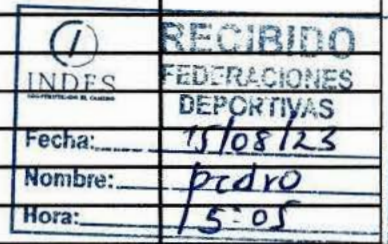 RECIBIDO
INDES
FEDERACIONES
DEPORTIVAS
Fecha: 15/08/23
Nombre: pedro
Hora: 15:05